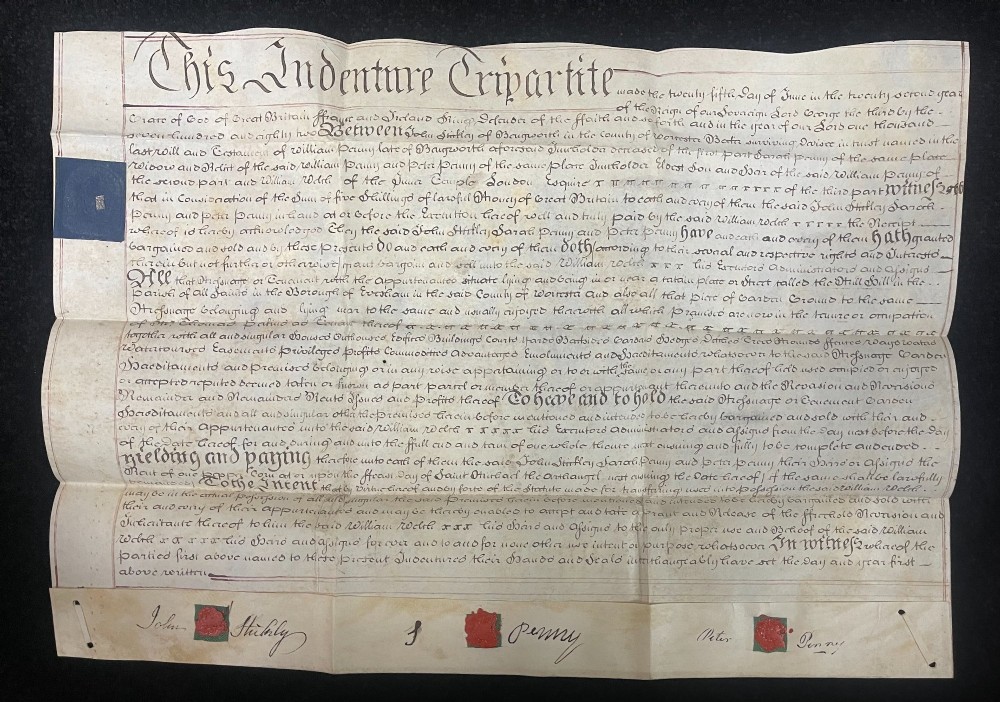 This Indenture Tripartite made the twenty fifth Day of June in the twenty second year
of the Reign of our Sovereign Lord George the third by the
Grace of God of Great Britain ffrance and Ireland King Defender of the ffaith and so forth and in the year of our Lord one thousand
seven hundred and eighty two Between John Stickley of Bengworth in the county of Worcester surviving Devisee in trust named in the
last Will and Testament of William Penny late of Bengworth aforesaid Innholder deceased of the first part Sarah Penny of the same place
Widow and Relict of the said William Penny and Peter Penny of the same place Innholder Eldest Son and Heir of the said William Penny of
the second part and William Welch of the Inner Temple London Esquire of the third part Witnesseth
that in Consideration of the Sum of five Shillings of lawful Money of Great Britain to each and every of them the said John Stickley Sarah
Penny and Peter Penny in hand at or before the Execution hereof well and truly paid by the said William Welch x x x x x the Receipt
whereof is hereby acknowledged They the said John Stickley Sarah Penny and Peter Penny Have and each and every of them Hath granted
bargained and sold and by these Presents Do and each and every of them Doth (according to their several and respective rights and Interests
therein but not further or otherwise) grant bargain and sell unto the said William Welch x x x his Executors Administrators and Assigns
All that Messuage or Tenement with the Appurtenances situate lying and being in or near a certain place or Street called the Mill Hill in the
Parish of All Saints in the Borough of Evesham in the said County of Worcester and also all that piece of Garden Ground to the same
Messuage belonging and lying near to the same and usually enjoyed therewith all which Premises are now in the tenure or occupation
of
together with all and singular Houses Outhouses Edifices Buildings Courts Yards Backsides Gardens Hedges Ditches Trees Mounds ffences Ways Waters
Watercourses Easements Privileges Profits Commodities Advantages Emoluments and Hereditaments whatsoever to the said Messuage Garden
Hereditaments and Premises belonging or in any wise appertaining or to or with the same or any part thereof held used occupied or enjoyed
or accepted reputed deemed taken or known as part parcel or member thereof or appurtenant thereunto and the Reversion and Reversions
Remainder and Remainders Rents Issues and Profits thereof To have and to hold the said Messuage or Tenement Garden
Hereditaments and all and singular other the Premises herein before mentioned and intended to be hereby bargained and sold with their and
every of their Appurtenances unto the said William Welch x x x x x his Executors Administrators and Assigns from the day next before the Day
of the Date hereof for and during and unto the ffull end and term of one whole thence next ensuing and fully to be complete and ended
Yielding and paying therefore unto each of them the said John Stickley Sarah Penny and Peter Penny their Heirs or Assigns the
Rent of one Pepper Corn at or upon the ffeast Day of Saint Michael the Archangel next ensuing the Date hereof if the same shall be lawfully
To the Intent that by virtue hereof and by force of the Statute made for transferring uses into possession the said William Welch
may be in the actual possession of all and singular the said Premises herein before mentioned and intended to be hereby bargained and sold with
their and every of their appurtenances and may be thereby enabled to accept and take a Grant and Release of the ffreehold Reversion and
Inheritance thereof to him the said William Welch x x x his Heirs and Assigns to the only proper use and Behoof of the said William
Welch x x x x x his Heirs and Assigns for ever and to and for none other use intent or purpose whatsoever In witness whereof the
parties first above named to these present Indentures their Hands and Seals interchangeably have set the Day and year first
above written
John Stickley
S Penny
Peter Penny